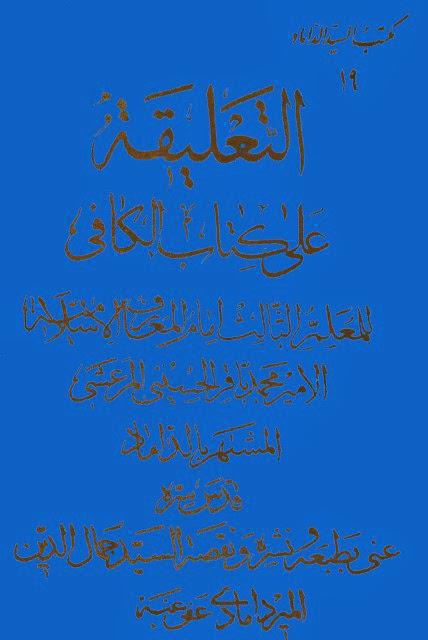 كتب السيد الداماد
١٩
التعليقة
على كتاب الكافي
للمعلم الثالث إمام المعارف الإسلامية
الأمير محمد باقر الحسيني المرعشي
المشتهر بالداماد
قدس سره
عنى بطبعه ونشره ونفقته السيد جمال الدين
الميردامادي عفى عنه